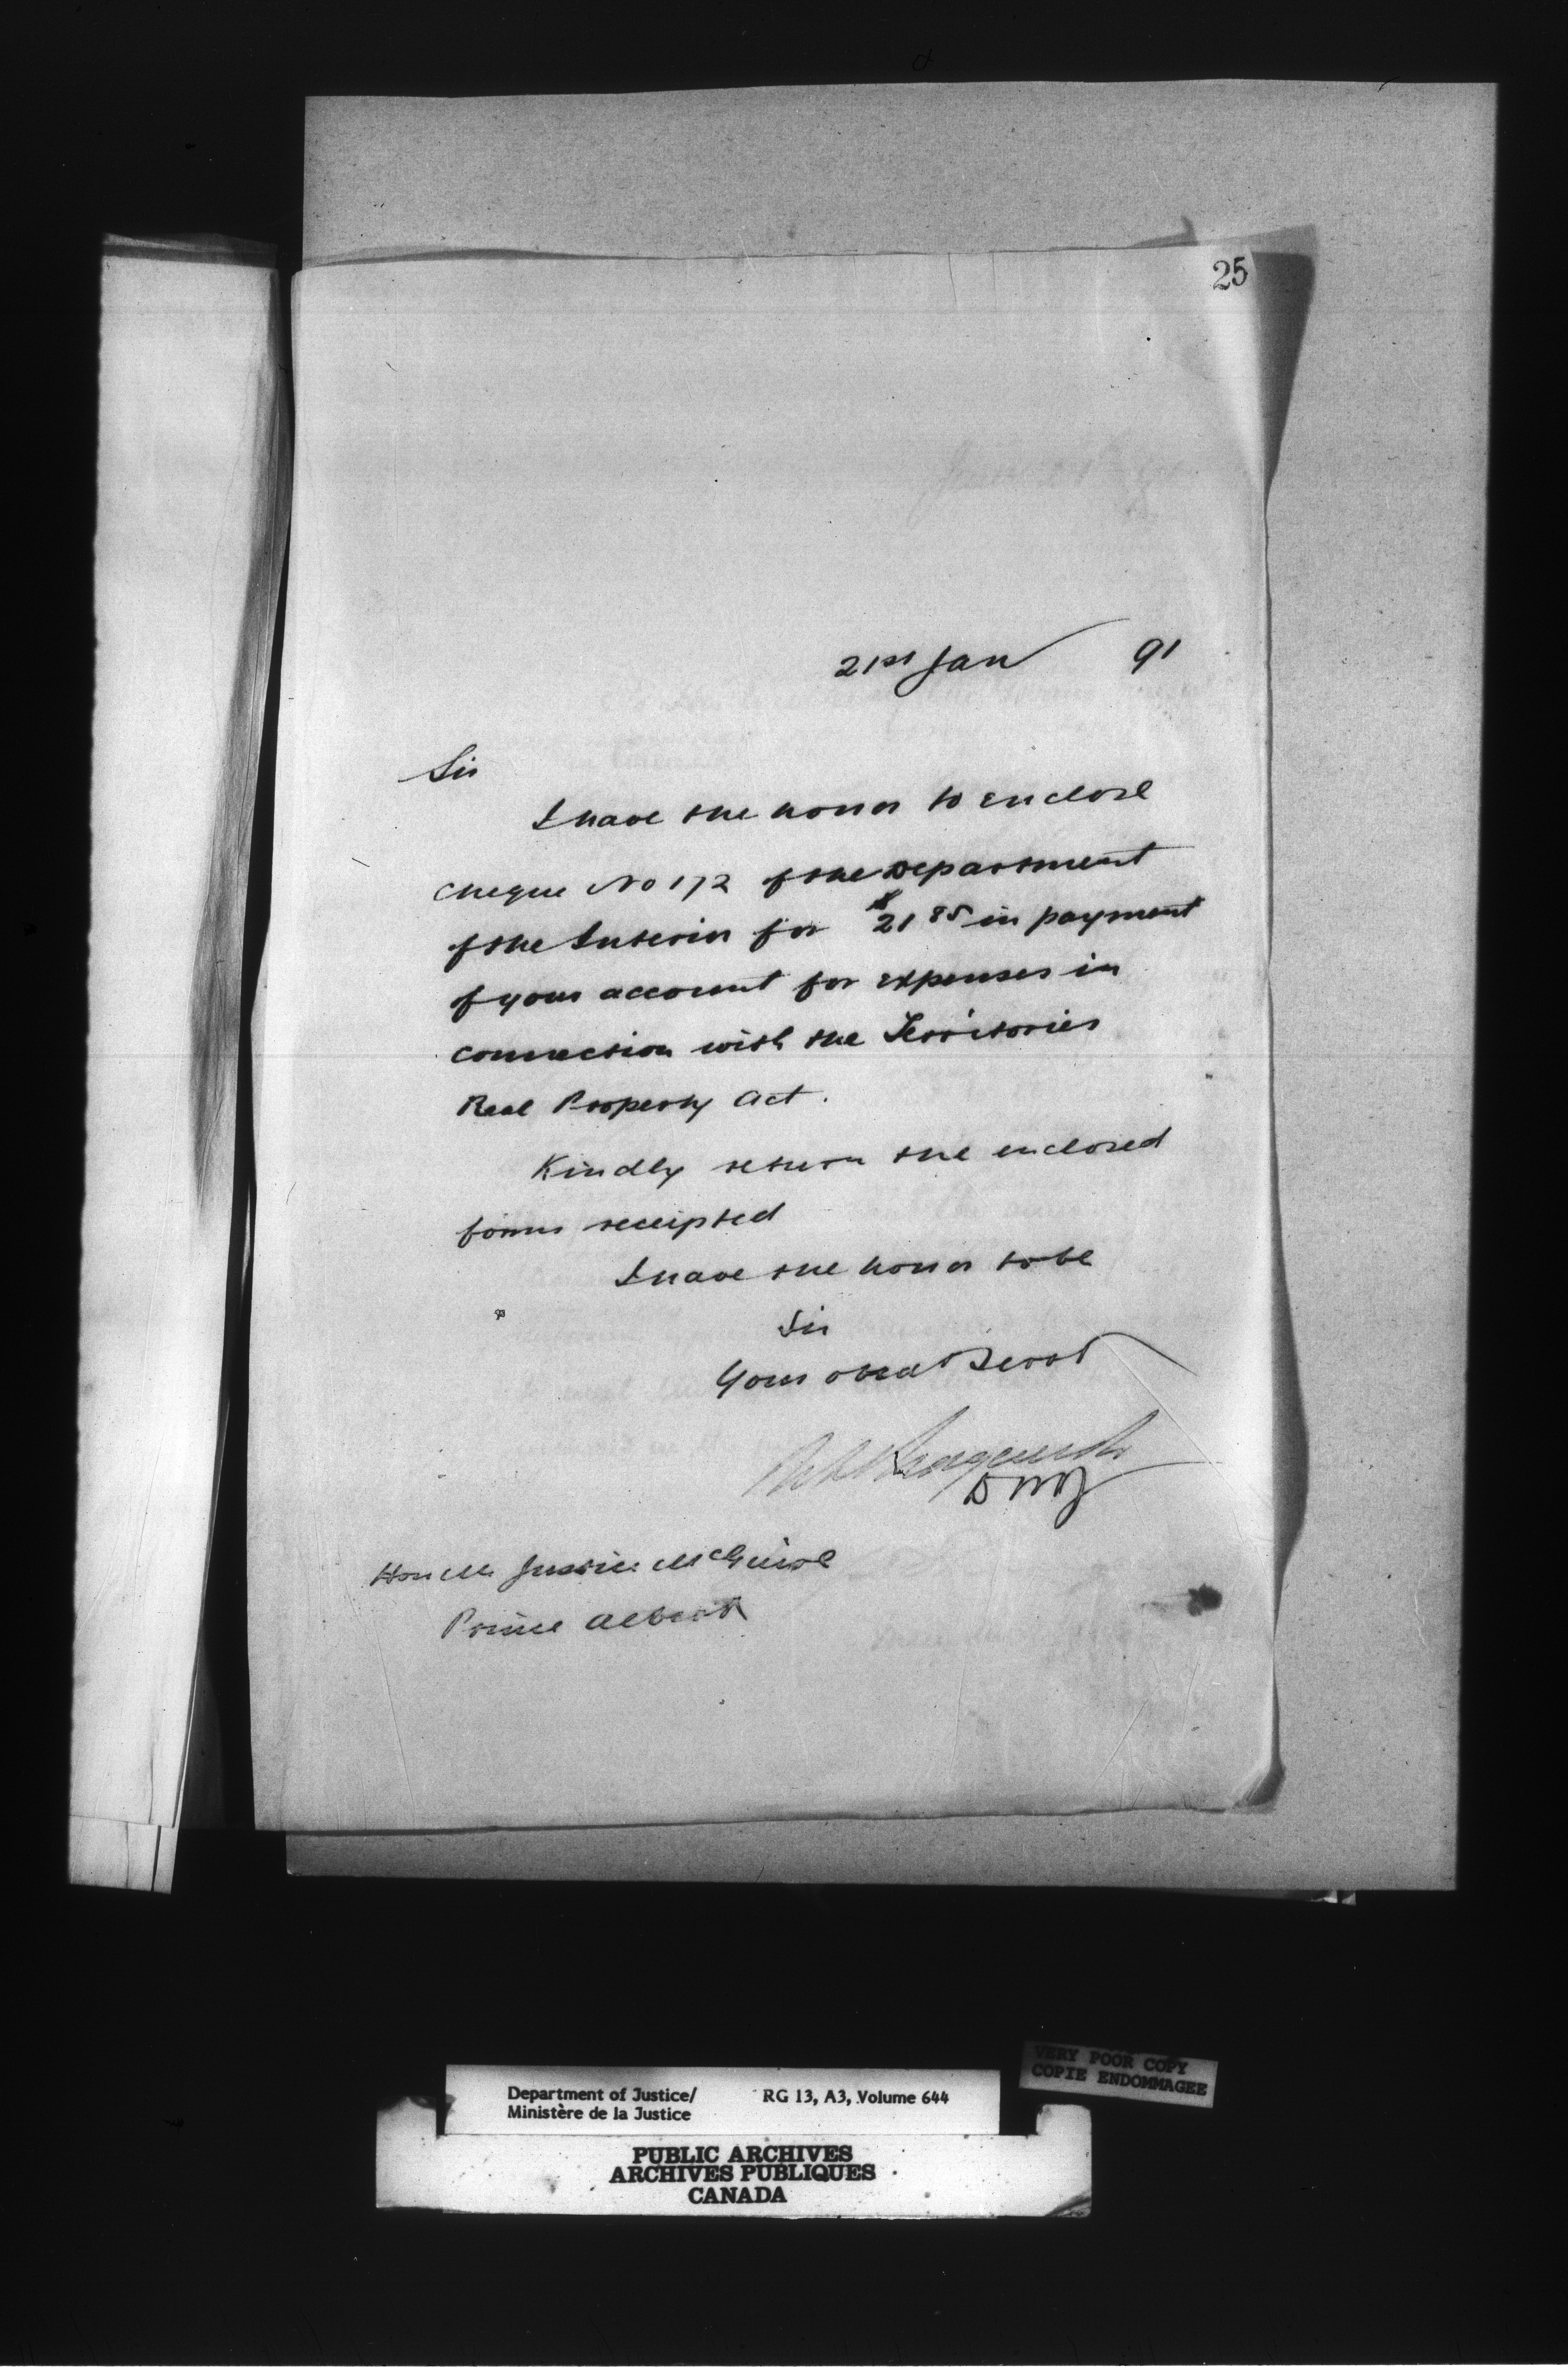 25
21st Jan 91
Sir
I have the honor to enclose
cheque No 172 of the Department
of the Interior for $21 85 in payment
of your account for expenses in
connection with the Territories
Real Property Act.
Kindly return the enclosed
forms receipted
I have the honor to be
Sir
Your obedt Servt
DMJ
Hon Mr Justice McGuire
Prince Albert
Department of Justice/ RG 13, A3, Volume 644
Ministère de la Justice
VERY POOR COPY
COPIE ENDOMMAGEE
PUBLIC ARCHIVES
ARCHIVES PUBLIQUES
CANADA